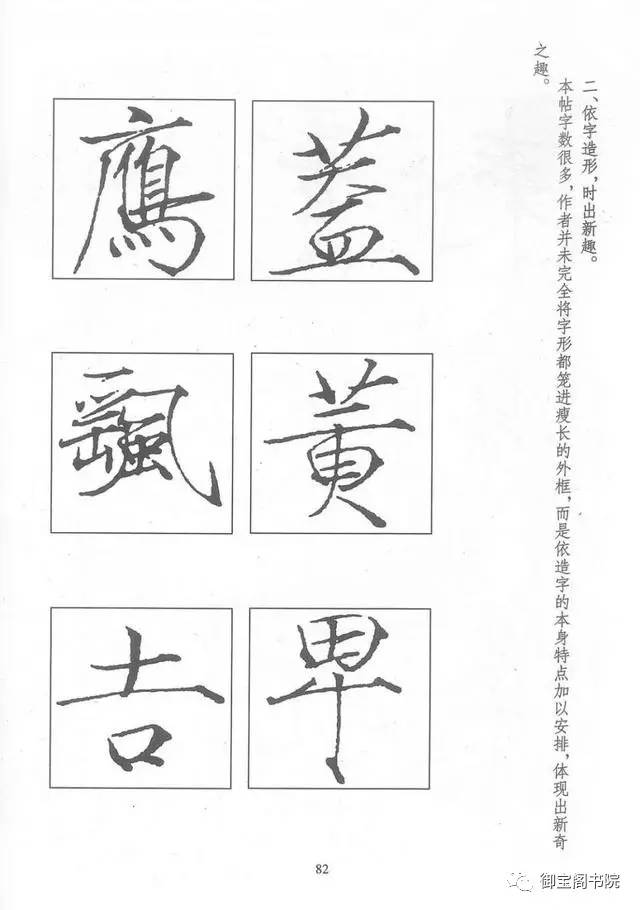 二、依字造形，时出新趣。
本帖字数很多，作者并未完全将字形都笼进瘦长的外框，而是依造字的本身特点加以安排，体现出新奇
之趣。
蓋
黃
卑
鷹
颻
吉
82
御宝阁书院